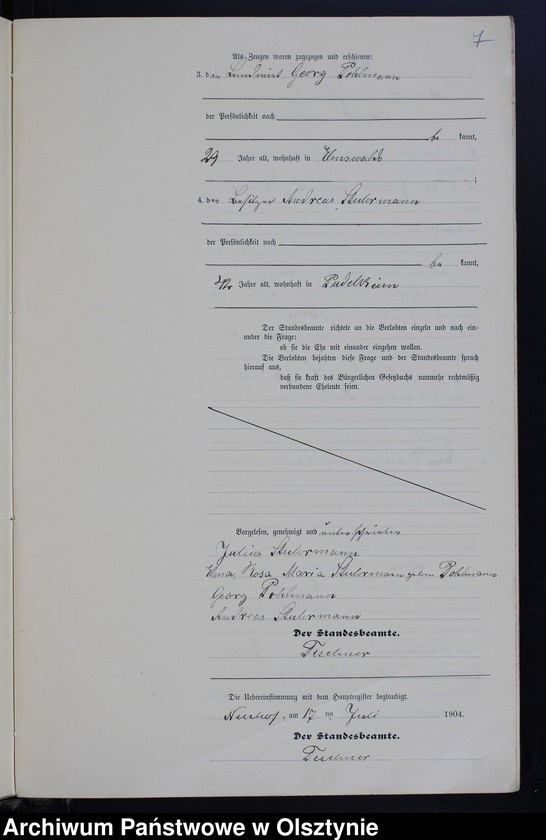 7
Als Zeugen waren zugezogen und erschienen:
3. der Landwirt Georg Pohlmann
der Persönlichkeit nach
be kannt,
29 Jahre alt, wohnhaft in
;
4. der Besitzer Andreas Stuhrmann
der Persönlichkeit nach
be kannt,
42 Jahre alt, wohnhaft in
Der Standesbeamte richtete an die Verlobten einzeln und nach ein-
ander die Frage:
ob sie die Ehe mit einander eingehen wollen.
Die Verlobten bejahten diese Frage und der Standesbeamte sprach
hierauf aus,
daß sie kraft des Bürgerlichen Gesetzbuchs nunmehr rechtmäßig
verbundene Eheleute seien.
Vorgelesen, genehmigt und unterschrieben
Julius Stuhrmann
Rosa Maria Stuhrmann geborne Pohlmann
Georg Pohlmann
Andreas Stuhrmann
Der Standesbeamte.
Teschner
Die Uebereinstimmung mit dem Hauptregister beglaubigt.
Neuhof, am 17 ten Juli 1904.
Der Standesbeamte.
Teschner
Archiwum Państwowe w Olsztynie